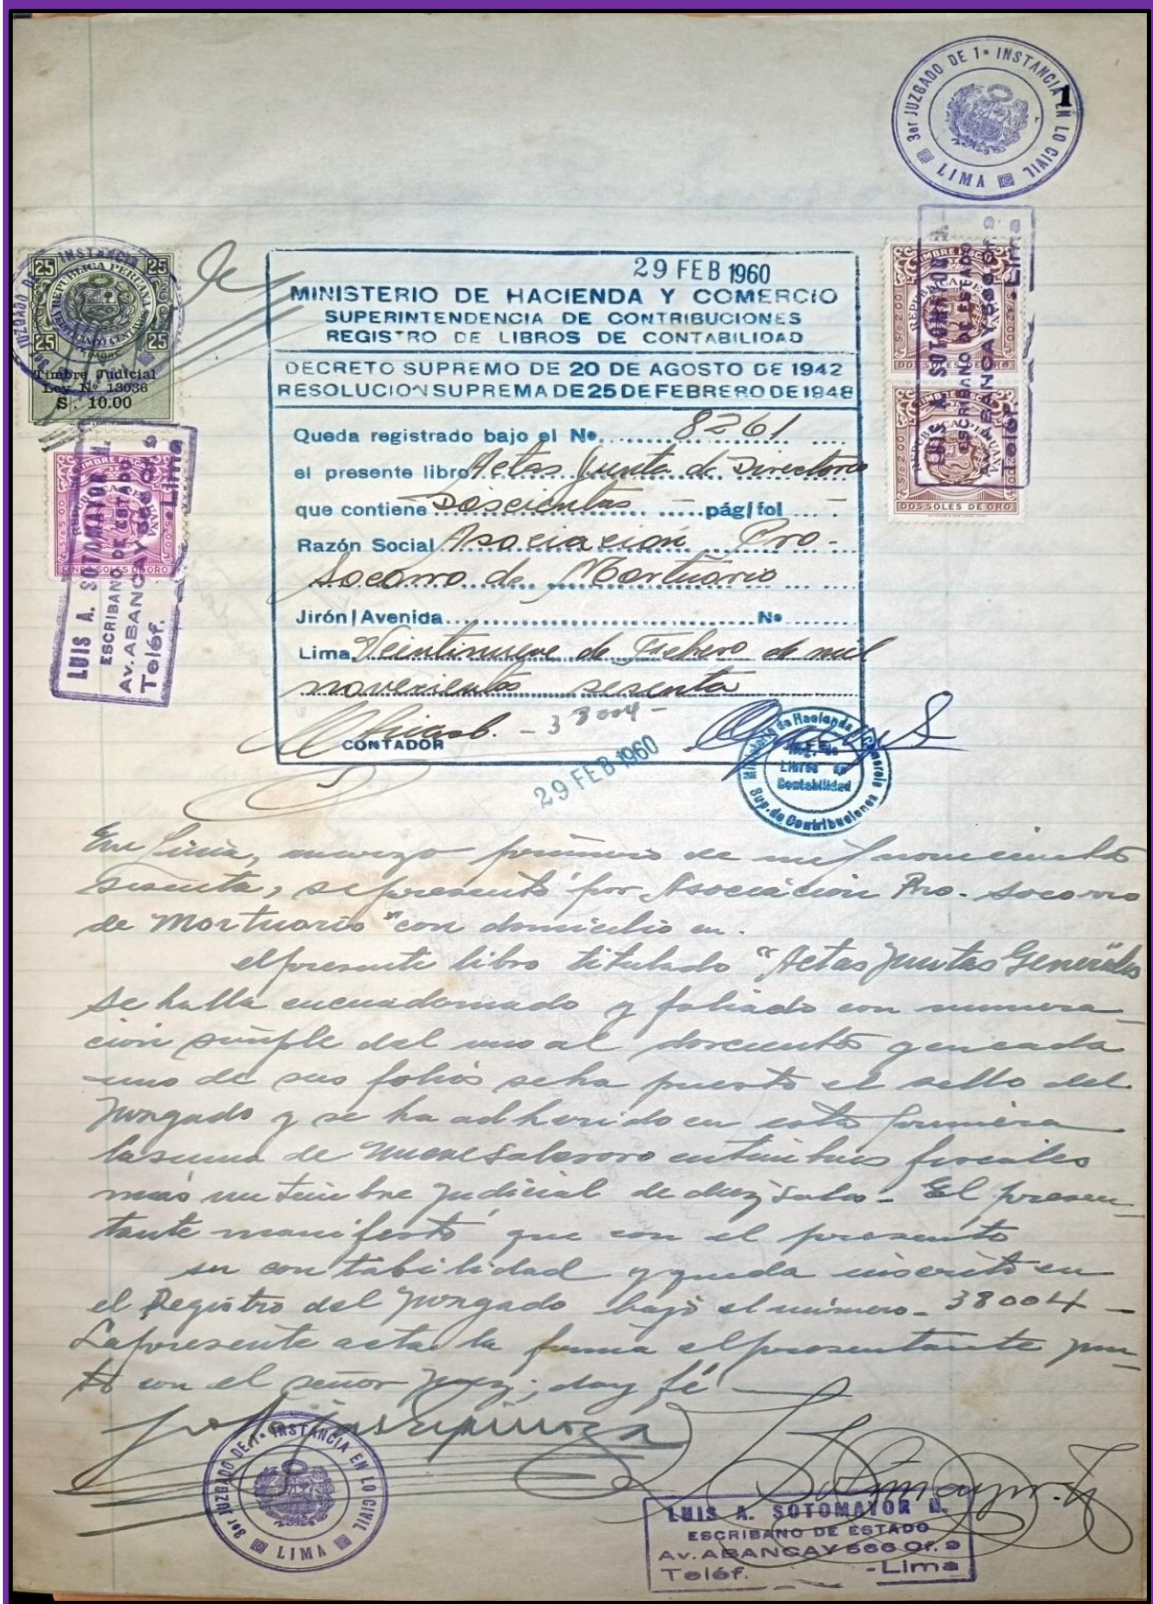 3er JUZGADO DE 1ª INSTANCIA EN LO CIVIL
LIMA
1
25 25
REPUBLICA PERUANA
25 25
TIMBRE
Timbre Judicial
Ley Nº 13036
S/. 10.00
LUIS A. SOTOMAYOR M.
ESCRIBANO DE ESTADO
Av. ABANCAY 566 Of. 9
Teléf. -Lima
DOS SOLES DE ORO
DOS SOLES DE ORO
LUIS A. SOTOMAYOR M.
ESCRIBANO DE ESTADO
Av. ABANCAY 566 Of. 9
Teléf. -Lima
29 FEB 1960
MINISTERIO DE HACIENDA Y COMERCIO
SUPERINTENDENCIA DE CONTRIBUCIONES
REGISTRO DE LIBROS DE CONTABILIDAD
DECRETO SUPREMO DE 20 DE AGOSTO DE 1942
RESOLUCION SUPREMA DE 25 DE FEBRERO DE 1948
Queda registrado bajo el Nº 8261
el presente libro Actas Junta de Directorio
que contiene Doscientas pág/fol
Razón Social Asociación Pro-
Socorro de Mortuorio
Jirón/Avenida Nº
Lima Veintinueve de Febrero de mil
novecientos sesenta
- 38004 -
CONTADOR
29 FEB 1960
Ministerio de Hacienda y Comercio
Libros de
Contabilidad
Sup. de Contribuciones
En Lima, marzo primero de mil novecientos
sesenta, se presentó por Asociación Pro-socorro
de Mortuorio" con domicilio en.
el presente libro titulado "Actas Juntas Generales
se halla encuadernado y foliado con numera-
ción simple del uno al doscientos y en cada
uno de sus folios se ha puesto el sello del
Juzgado y se ha adherido en esta primera
la suma de nueve soles oro en timbres fiscales
más un timbre judicial de diez soles - El presen-
tante manifestó que con el presente
su contabilidad y queda inscrito en
el Registro del Juzgado bajo el número - 38004 -
La presente acta la firma el presentante jun-
to con el señor Juez; doy fé -
3er JUZGADO DE 1ª INSTANCIA EN LO CIVIL
LIMA
LUIS A. SOTOMAYOR M.
ESCRIBANO DE ESTADO
Av. ABANCAY 566 Of. 9
Teléf. -Lima